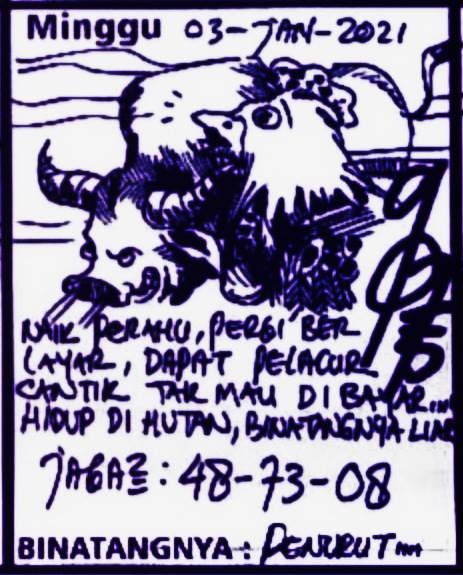 Minggu 03-JAN-2021
NAIK PERAHU, PERGI BER
LAYAR, DAPAT PELACUR
CANTIK TAK MAU DI BAYAR...
HIDUP DI HUTAN, BINATANGNYA LIAR
JAGA2 : 48-73-08
BINATANGNYA : PENURUT...